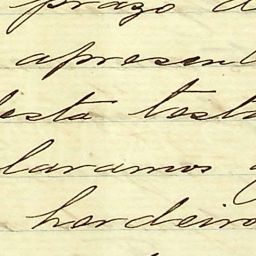 prazo d
apresent
esta test
laramos q
herdeiro